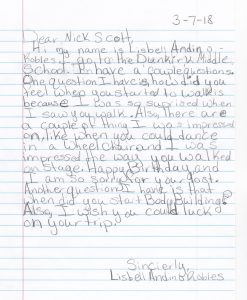 3-7-18
Dear Nick Scott,
Hi my name is Lisbell Andino
Robles I go to the Dunkirk Middle
School. I have a couple questions.
One question I have is how did you
feel when you started to walk is
because I was so suprised when
I saw you walk. Also, there are
a couple of thing I was impressed
on, like when you could dance
in a wheelchair and I was
impressed the way you walked
on Stage. Happy Birthday and
I am so sorry for your lost.
Another question I have is that
when did you start Body Building?
Also, I wish you could luck
on your trip.
Sincierly,
Lisbell Andino Robles